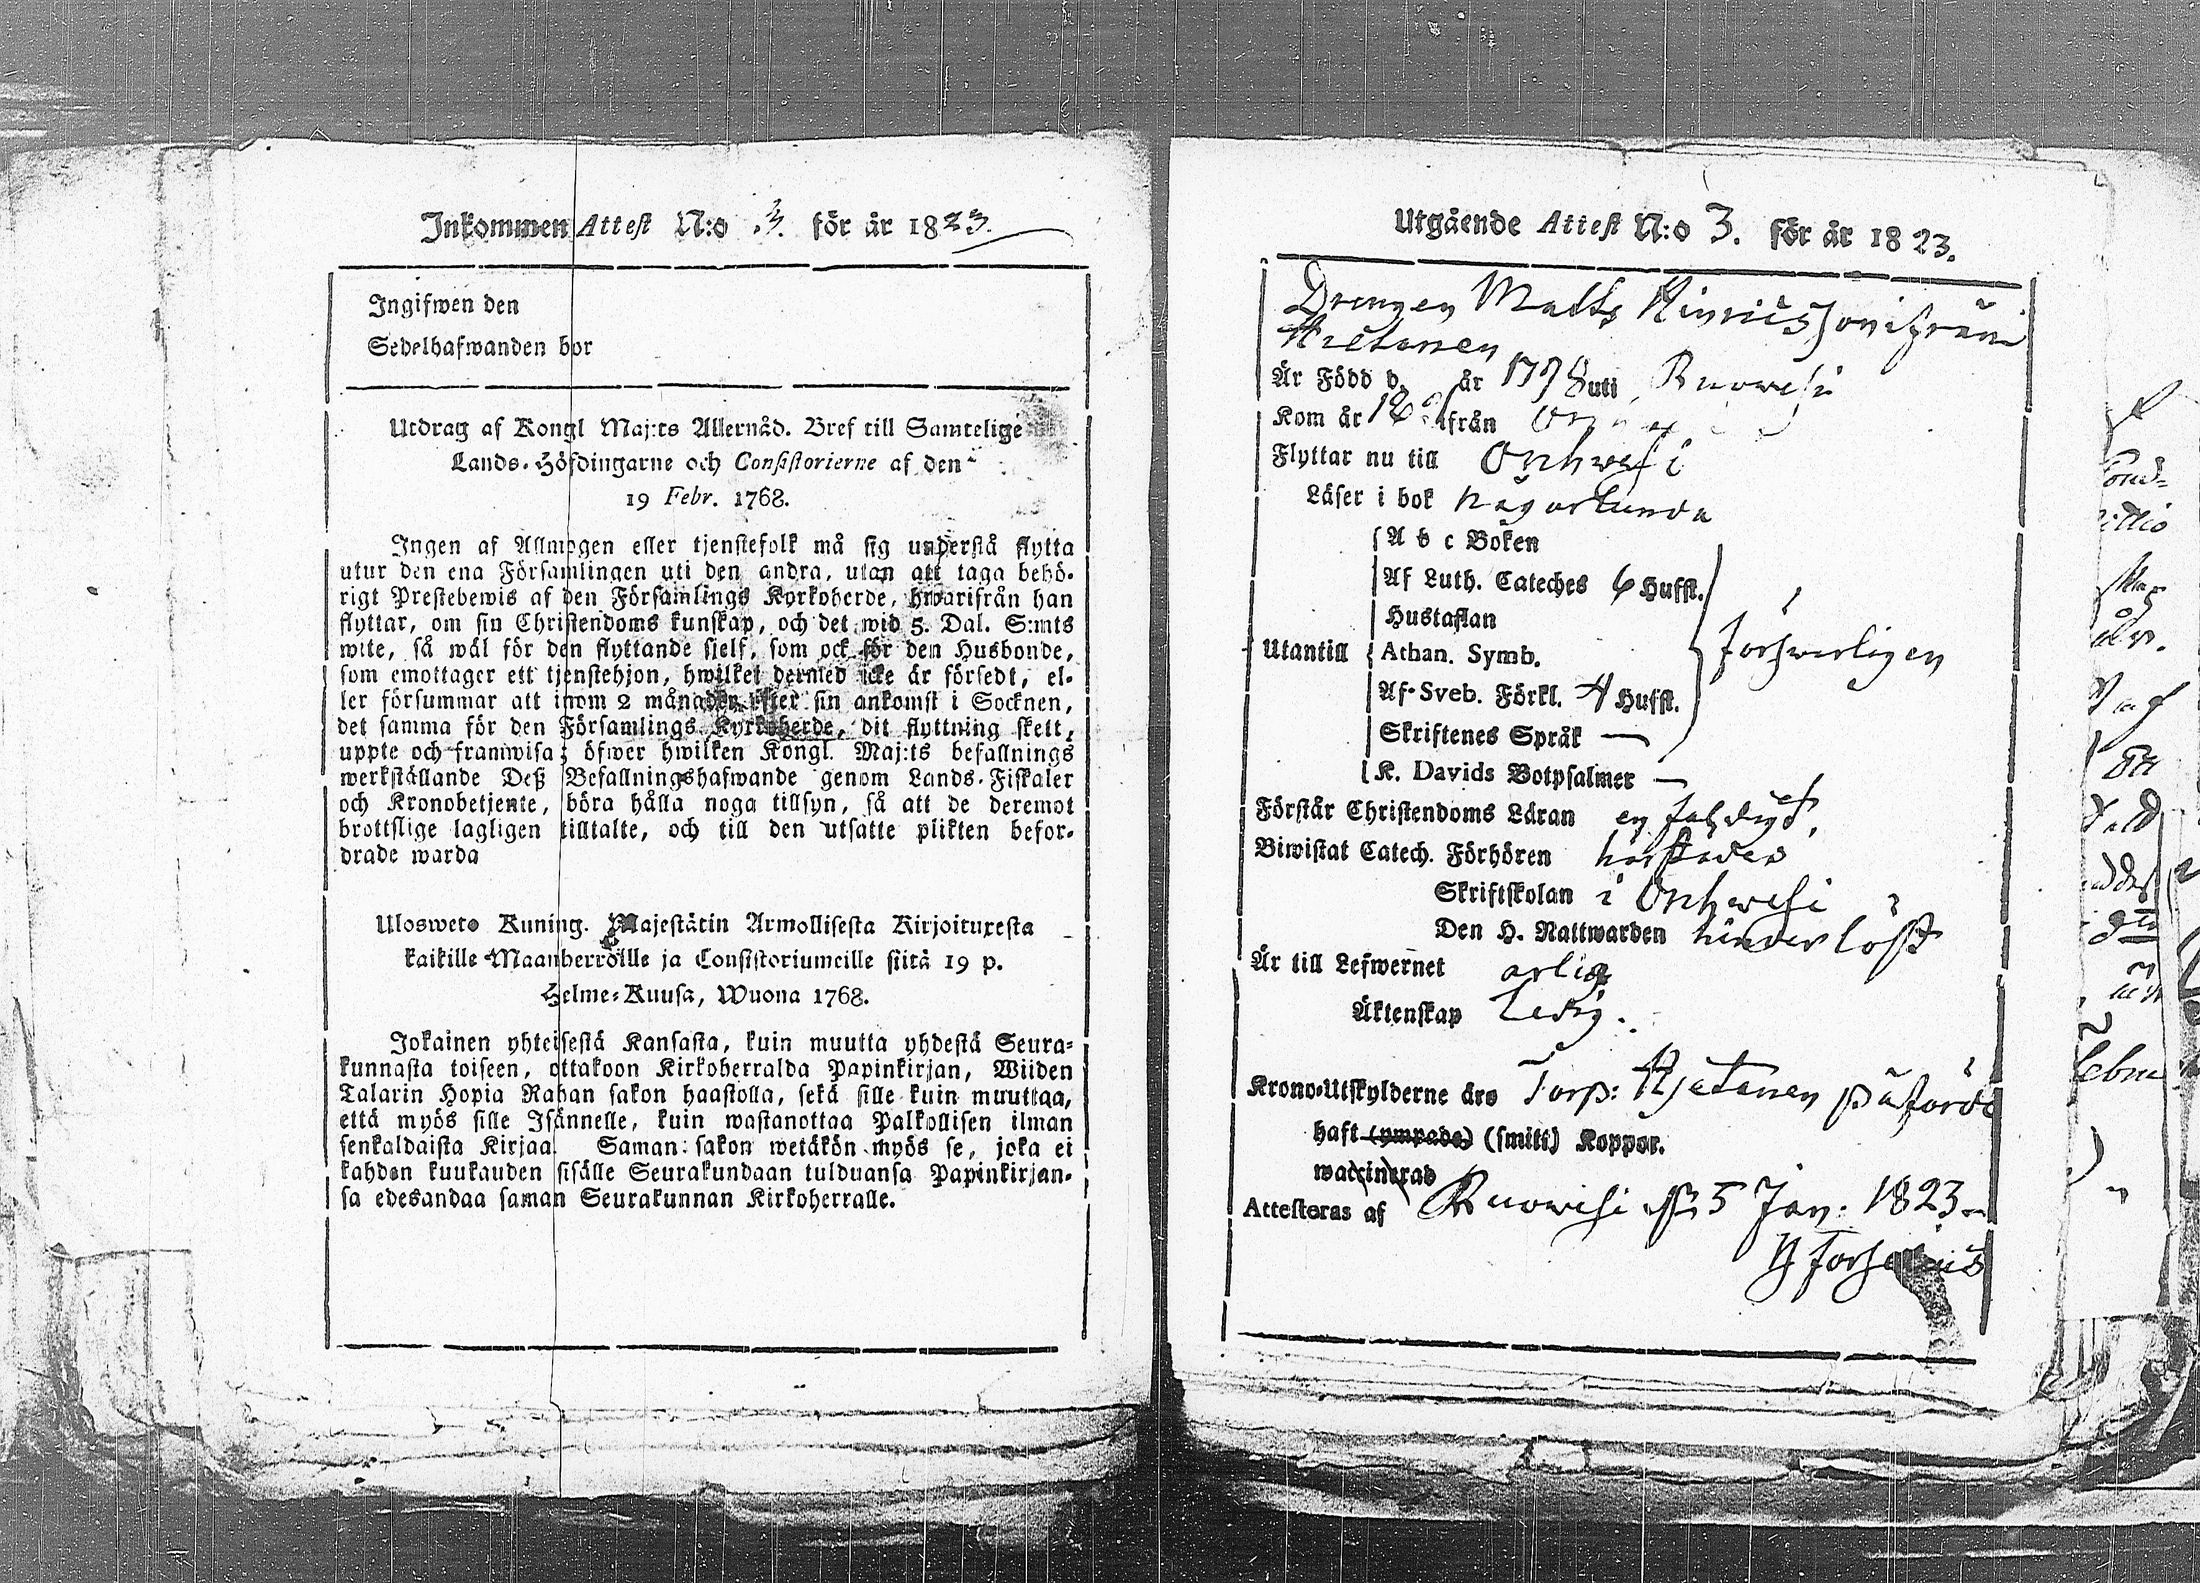 Inkommen Attest N:o 3. för år 1823.
Ingifwen den
Sedelhafwanden bor
Utdrag af Kongl Maj:ts Allernåd. Bref till Samtelige
Lands-Höfdingarne och Consistorierne af den
19 Febr. 1768.
Ingen af Allmogen eller tjenstefolk må sig understå flytta
utur den ena Församlingen uti den andra, utan att taga behö-
rigt Prestebewis af den Församlings Kyrkoherde, hwarifrån han
flyttar, om sin Christendoms kunskap, och det wid 5. Dal. S:mts
wite, så wäl för den flyttande sjelf, som ock för den Husbonde,
som emottager ett tjenstehjon, hwilket dermed icke är försedt, el-
ler försummar att inom 2 månader efter sin ankomst i Socknen,
det samma för den Församlings Kyrkoherde, dit flyttning skett,
uppte och framwisa; öfwer hwilken Kongl. Maj:ts befallnings
werkställande Deß Befallningshafwande genom Lands-Fiskaler
och Kronobetjente, böra hålla noga tillsyn, så att de deremot
brottslige lagligen tilltalte, och till den utsatte plikten befor-
drade warda
Ulosweto Kuning. Majestätin Armollisesta Kirjoituxesta
kaikille Maanherroille ja Consistoriumeille siitä 19 p.
Helme-Kuusa, Wuona 1768.
Jokainen yhteisestä Kansasta, kuin muutta yhdestä Seura-
kunnasta toiseen, ottakoon Kirkoherralda Papinkirjan, Wiiden
Talarin Hopia Rahan sakon haastolla, sekä sille kuin muuttaa,
että myös sille Isännelle, kuin wastanottaa Palkollisen ilman
senkaldaista Kirjaa. Saman sakon wetäkön myös se, joka ei
kahden kuukauden sisälle Seurakundaan tulduansa Papinkirjan-
sa edesandaa saman Seurakunnan Kirkoherralle.
Utgående Attest N:o 3. för år 1823.
Drengen Matts Hinricsson ifrån
Är Född d. år 1798 uti Ruowesi
Kom år från
Flyttar nu till Orihwesi
Läser i bok någorlunda
A b c Boken
Af Luth. Cateches 6 Hufst.
Hustaflan
Utantill Athan. Symb. försvarligen
Af Sveb. Förkl. 4 Hufst.
Skriftenes Språk —
K. Davids Botpsalmer —
Förstår Christendoms Läran enfaldigt
Biwistat Catech. Förhören härstädes
Skriftskolan i Orihwesi
Den H. Nattwarden hinderlöst
Är till Lefwernet ärlig
Äktenskap Ledig.
Krono-Utskylderne äro Torp: påförde
haft (ympade) (smitt) Koppor.
waccinerad
Attesteras af Ruowesi d. 5 Jan. 1823